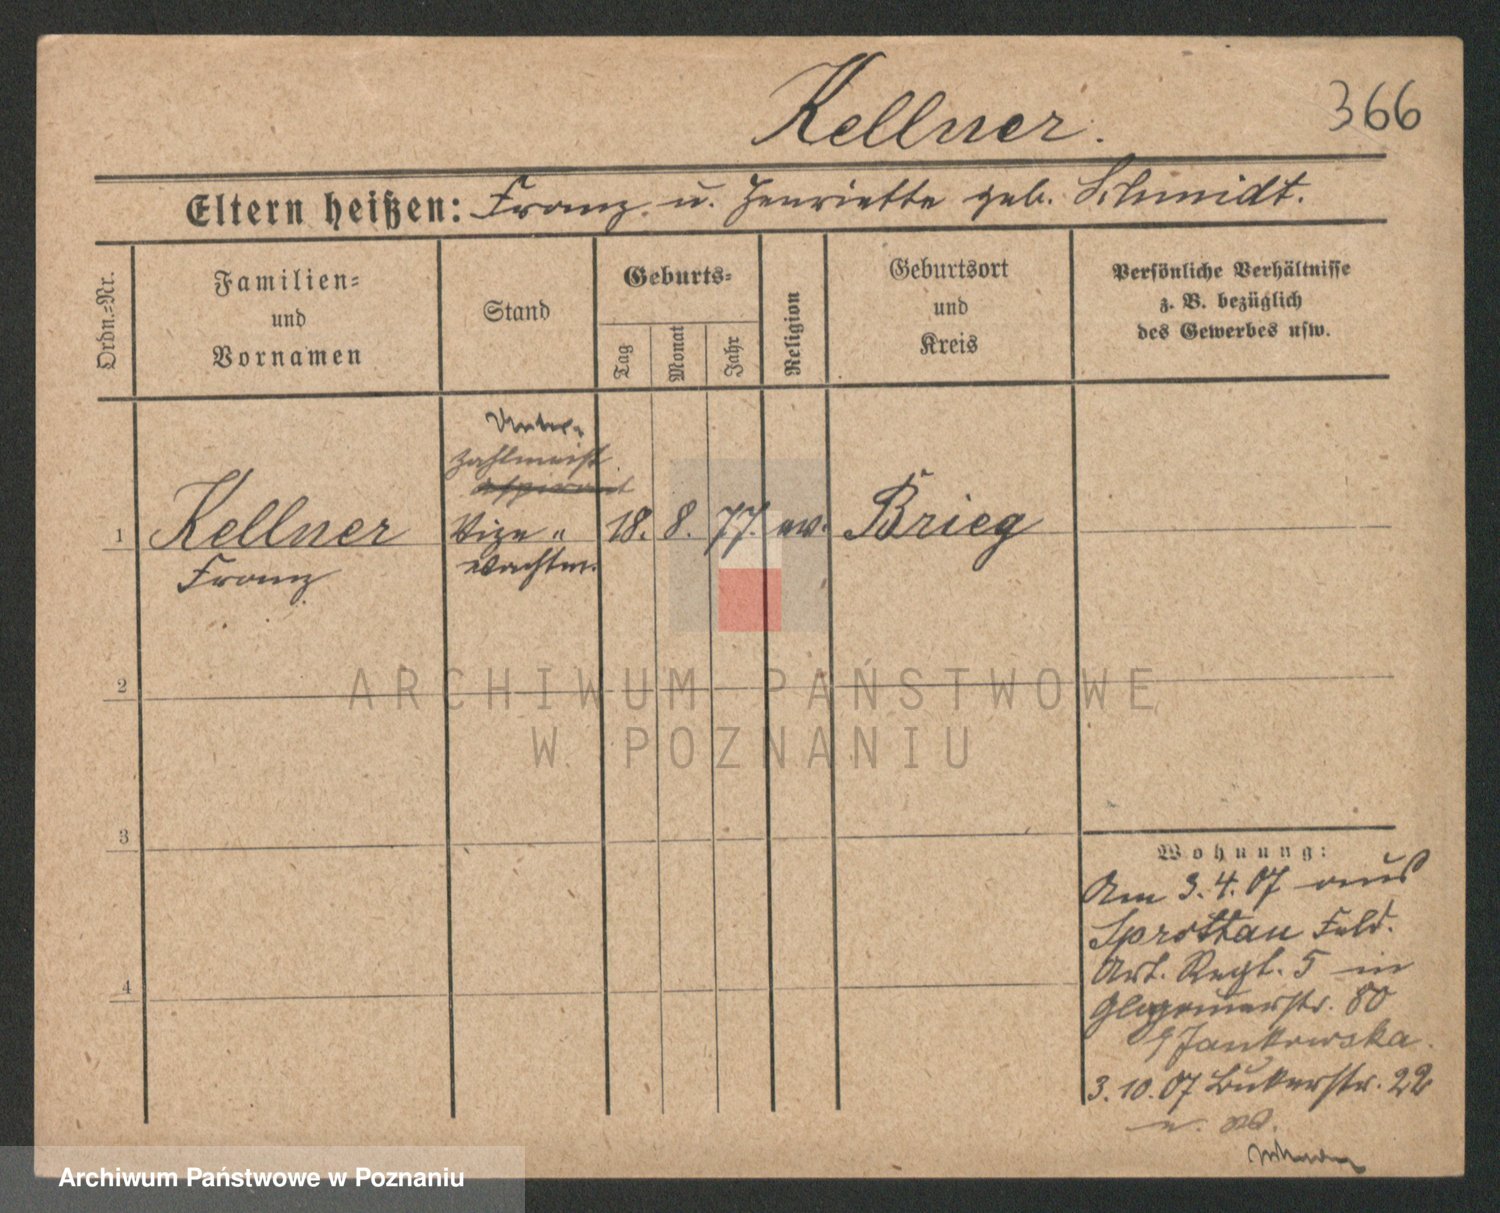 Kellner.
366
Eltern heißen: Franz u. Henriette geb. Schmidt.
Ordn.-Nr.
Familien-
und
Vornamen
Stand
Geburts-
Tag
Monat
Jahr
Religion
Geburtsort
und
Kreis
Persönliche Verhältnisse
z. B. bezüglich
des Gewerbes usw.
Unter-
Zahlmeist.
aspirant
1 Kellner Vize " 18. 8. 77. ev. Brieg
Franz Wachtm.
2
3
4
Wohnung:
Am 3.4.07 aus
Sprottau Feld.
Art. Regt. 5 in
Glogauerstr. 80
Jankowska.
3.10.07 Bukerstr. 22
ARCHIWUM PAŃSTWOWE
W POZNANIU
Archiwum Państwowe w Poznaniu